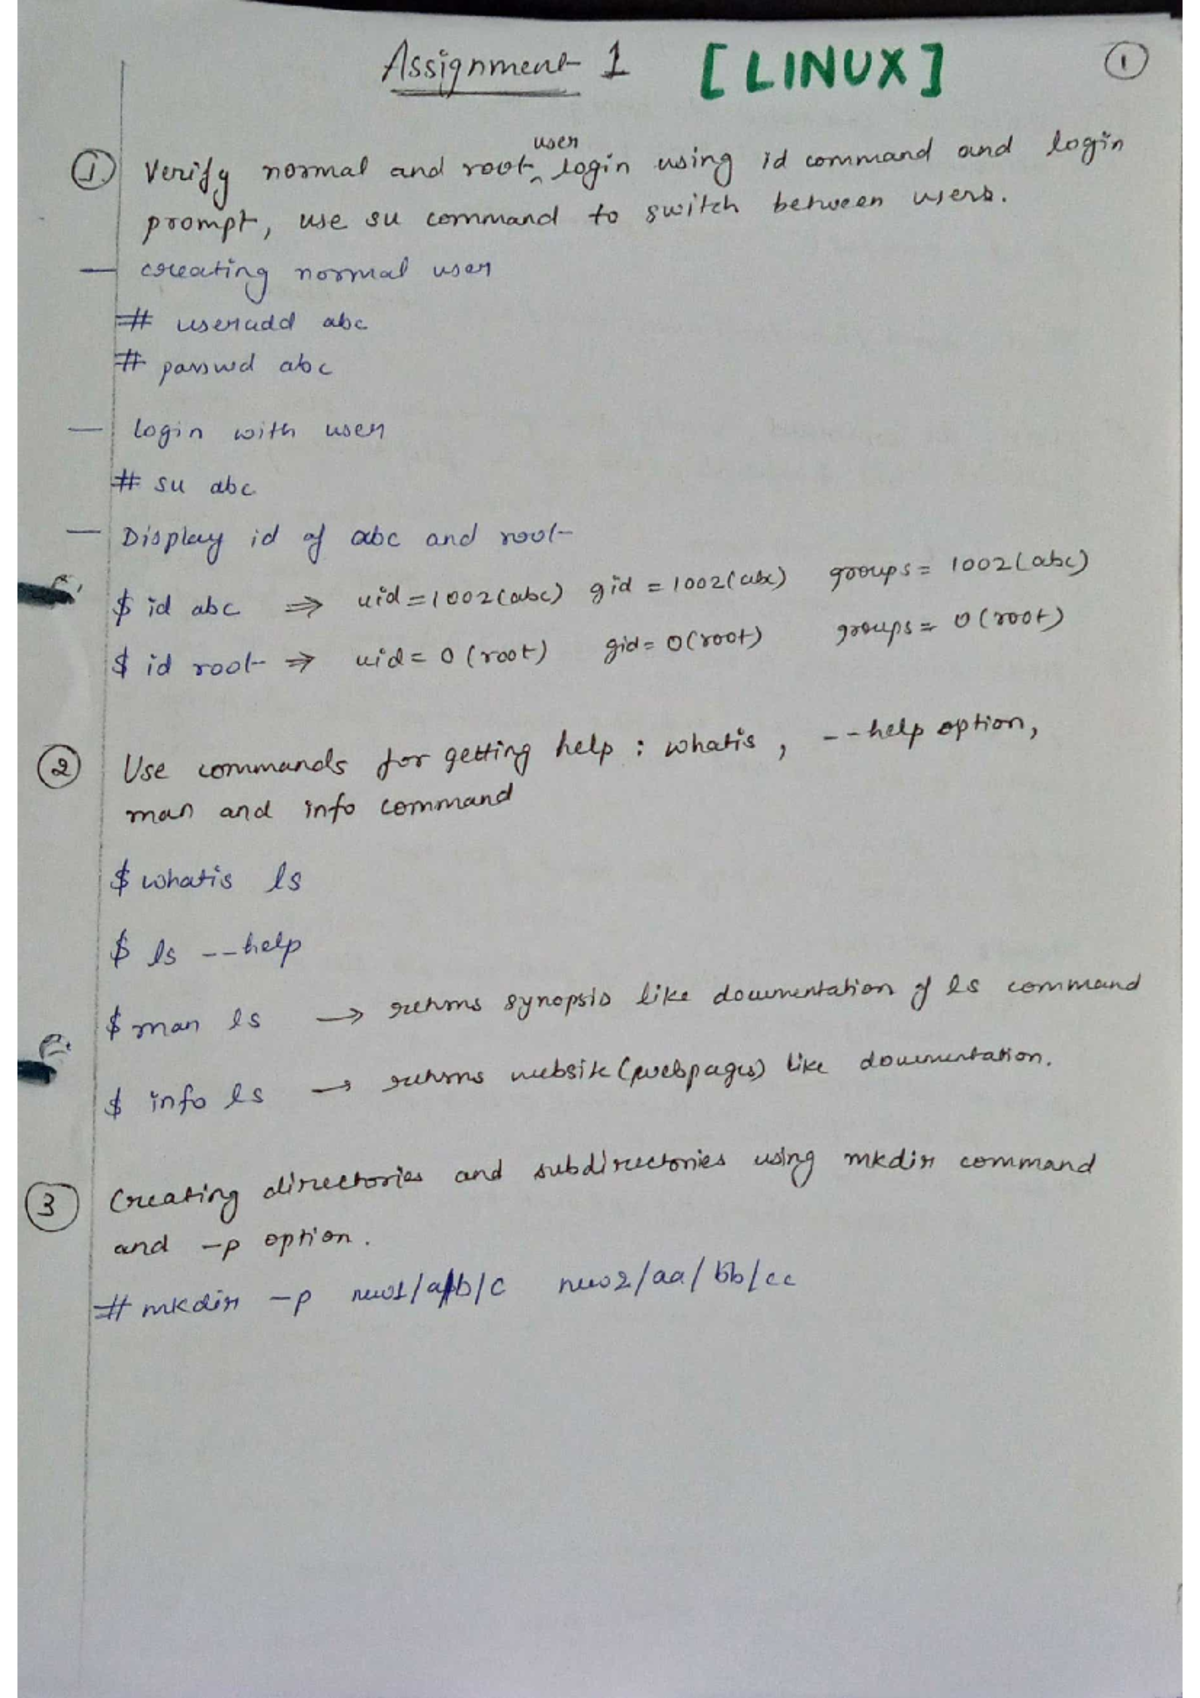 Assignment 1 [LINUX] 1
1. Verify normal and root user login using id command and login
prompt, use su command to switch between users.
— creating normal user
# useradd abc
# passwd abc
— login with user
# su abc
— Display id of abc and root
$ id abc ⇒ uid=1002(abc) gid=1002(abc) groups=1002(abc)
$ id root ⇒ uid=0(root) gid=0(root) groups=0(root)
2 Use commands for getting help : whatis, --help option,
man and info command
$ whatis ls
$ ls --help
$ man ls → returns synopsis like documentation of ls command
$ info ls → returns website (webpages) like documentation.
3 Creating directories and subdirectories using mkdir command
and -p option.
# mkdir -p new1/a/b/c new2/aa/bb/cc